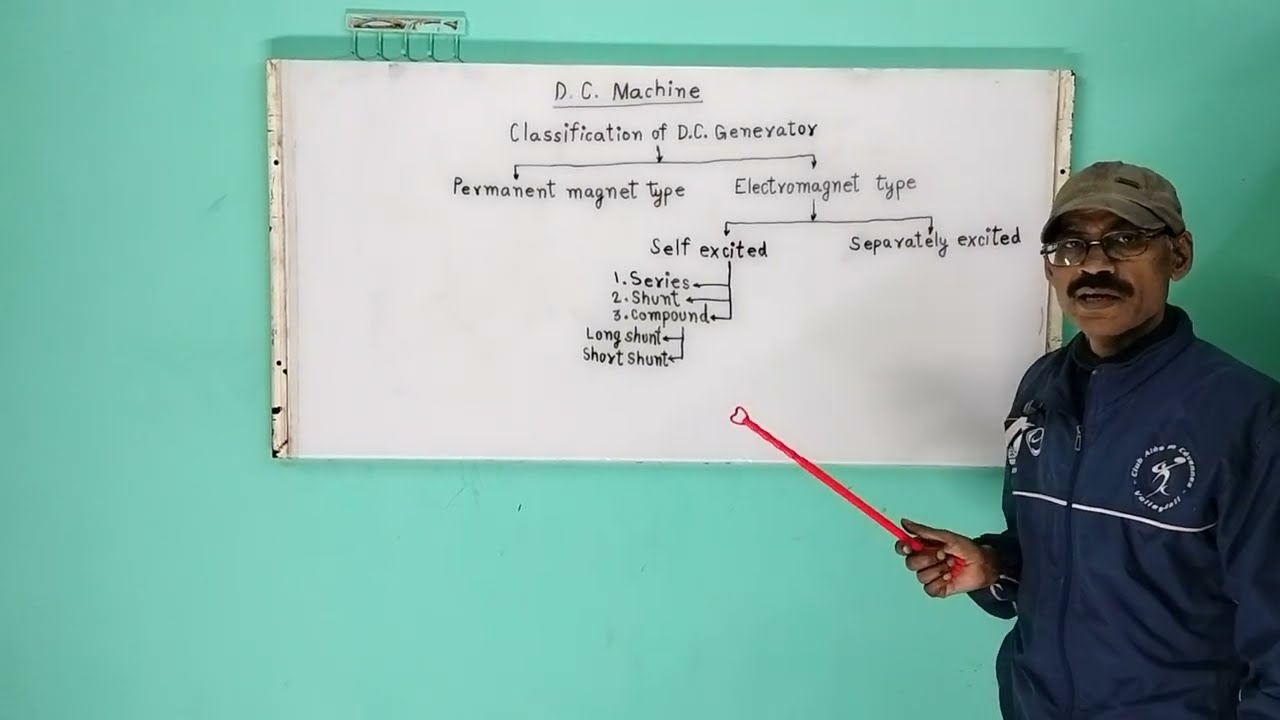 D. C. Machine
Classification of D.C. Generator
Permanent magnet type Electromagnet type
Self excited Separately excited
1. Series
2. Shunt
3. Compound
Long shunt
Short shunt
Volleyball